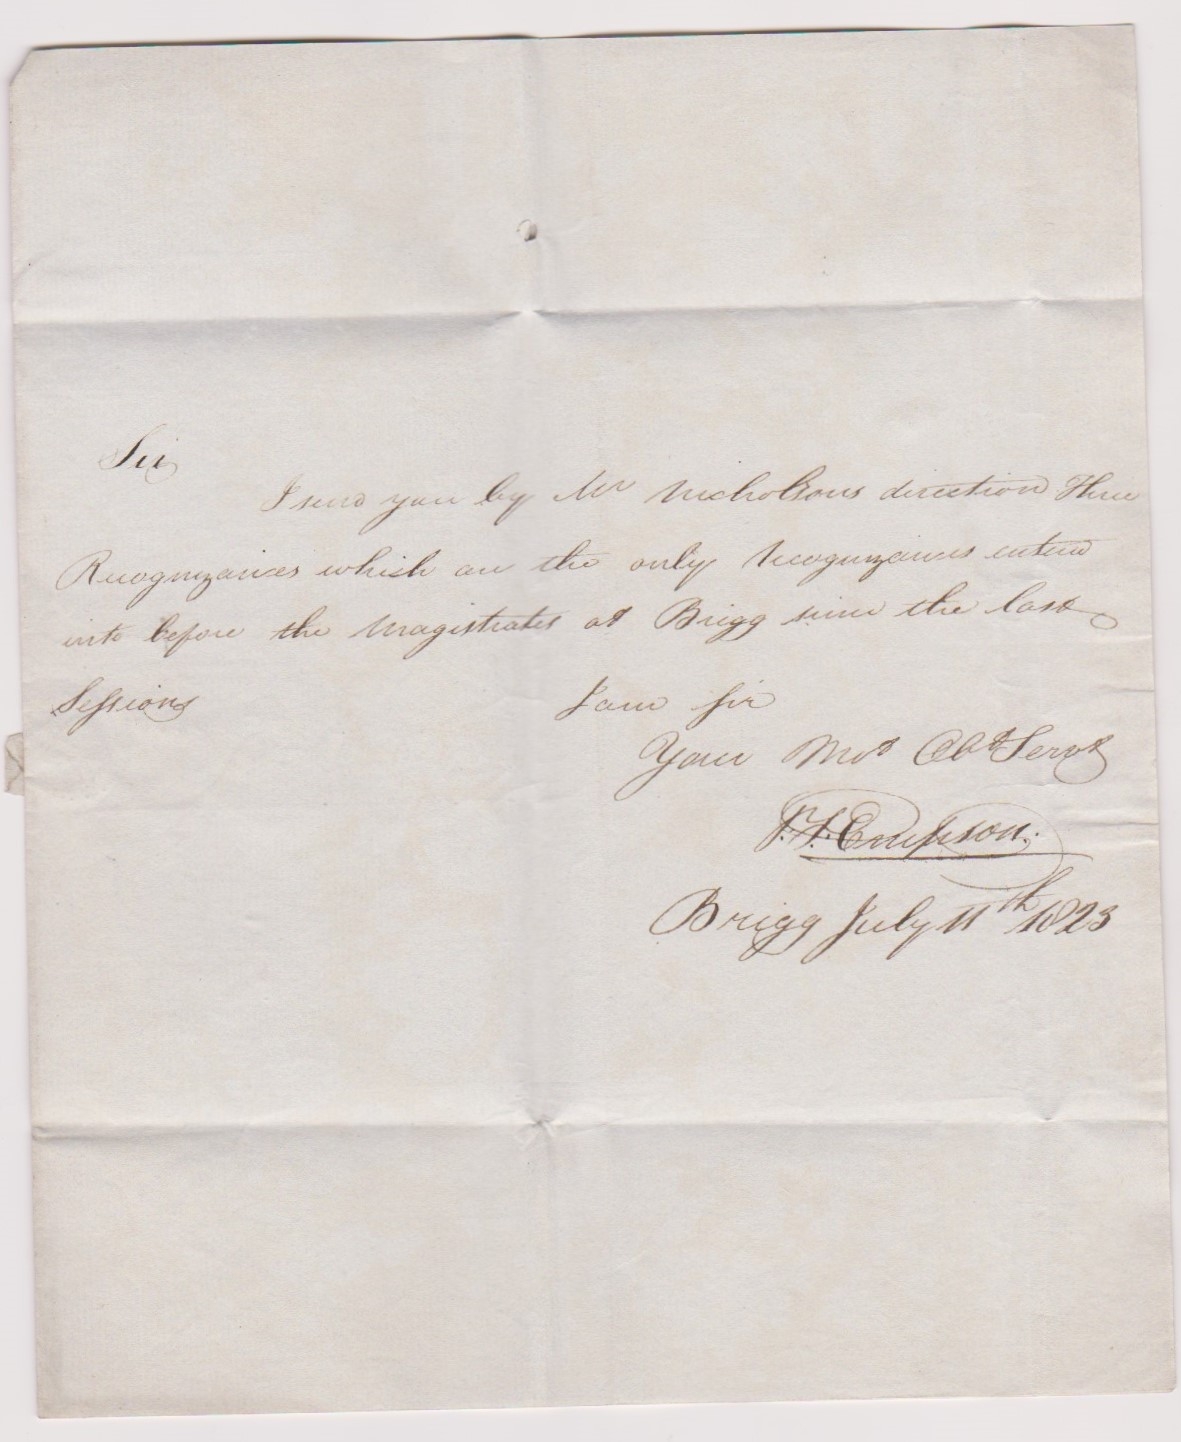 Sir
I send you by Mr Nicholsons direction Three
Recognizances which are the only Recognizances entered
into before the Magistrates at Brigg since the last
Sessions
I am Sir
Your Mot Obt Servt
Empson.
Brigg July 11th 1823